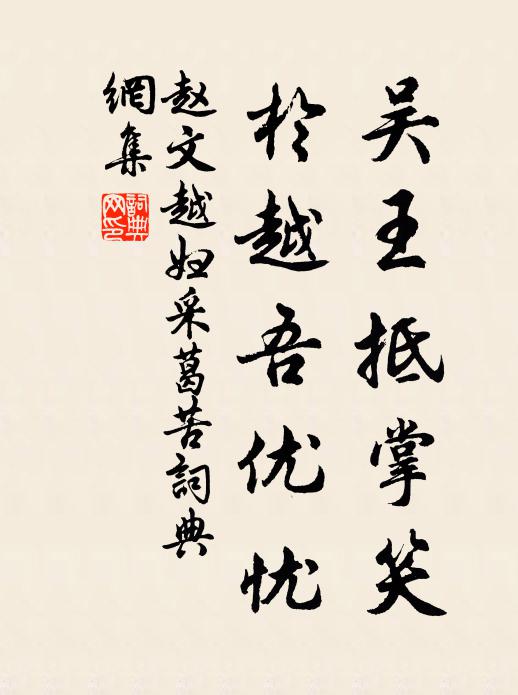 吴王抵掌笑
於越吾优忧
赵文越妇采葛苦詞典
網集
詞典
网印